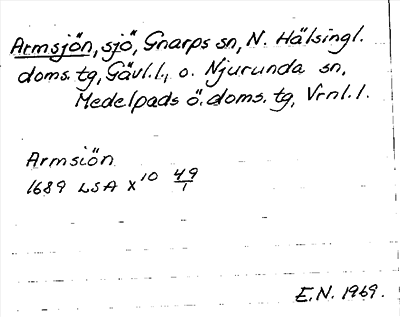 Armsjön, sjö, Gnarps sn, N. Hälsingl.
doms. tg, Gävl. l., o. Njurunda sn,
Medelpads ö. doms. tg, Vrnl. l.
Armsiön
1689 LSA X 10 49/1
E.N. 1969.